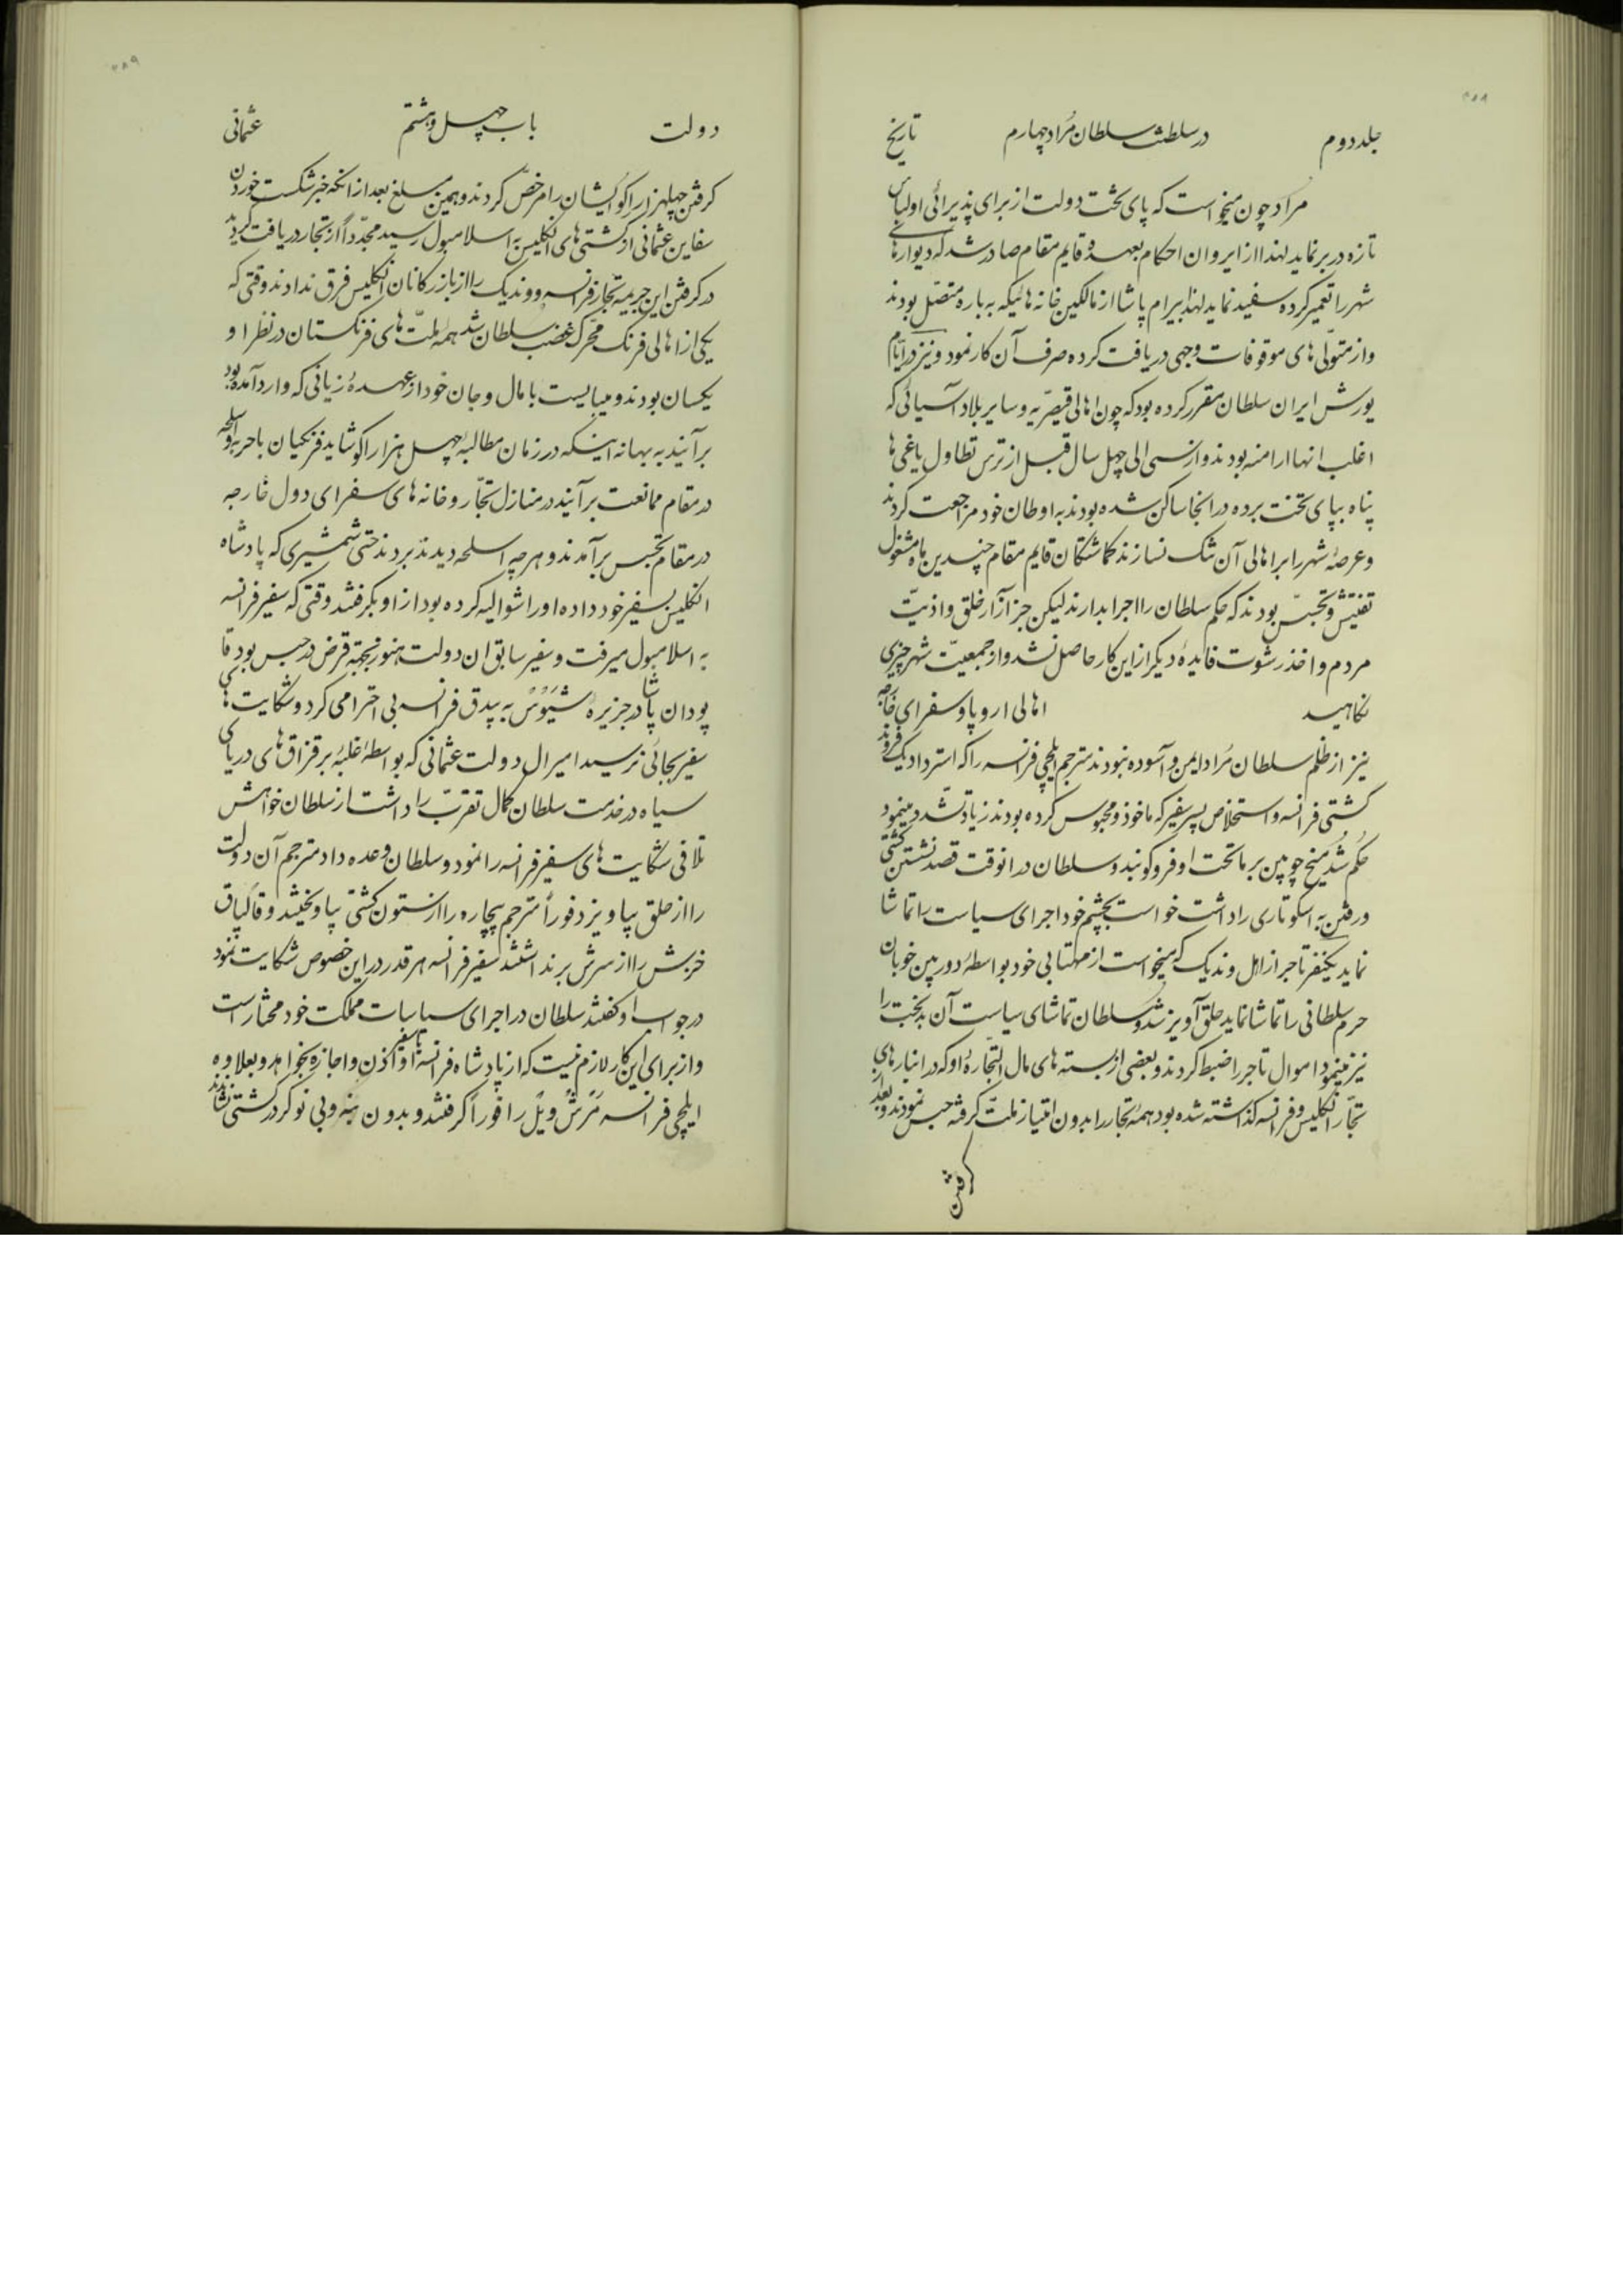 ۲۸۸
جلد دوم در سلطنت سلطان مراد چهارم تاریخ
مراد چون میخواست که پای تخت دولت از برای پذیرائی او لباس
تازه در بر نماید لهذا از ایروان احکام بعهده قایم مقام صادر شد که دیوارهای
شهر را تعمیر کرده سفید نماید لهذا بیرام پاشا از مالکین خانه هائیکه به باره متصل بودند
و از متولی های موقوفات وجهی دریافت کرده صرف آن کار نمود و نیز در ایام
یورش ایران سلطان مقرر کرده بود که چون اهالی قیصریه و سایر بلاد آسیائی که
اغلب انها ارامنه بودند و از سی الی چهل سال قبل از ترس تطاول یاغی ها
پناه بپای تخت برده در انجا ساکن شده بودند به اوطان خود مراجعت کردند
و عرصه شهر را بر اهالی آن تنک نسازند کماشتکان قایم مقام چندین ماه مشغول
تفتیش و تجسس بودند که حکم سلطان را اجرا بدارند لیکن جز آزار خلق و اذیت
مردم و اخذ رشوت فایده دیکر از این کار حاصل نشد و از جمعیت شهر چیزی
نکاهید اهالی اروپا و سفرای خارجه
نیز از ظلم سلطان مراد ایمن و آسوده نبودند مترجم ایلچی فرانسه را که استرداد یک فروند
کشتی فرانسه و استخلاص پسر سفیر که ماخوذ و محبوس کرده بودند زیاد تشدد مینمود
حکم شد میخ چوبین بر ماتحت او فرو کوبند و سلطان در انوقت قصد نشستن کشتی
و رفتن به اسکوتاری را داشت خواست بچشم خود اجرای سیاست را تماشا
نماید یکنفر تاجر از اهل وندیک که میخواست از مهتابی خود بواسطه دوربین خوبان
حرم سلطانی را تماشا نماید حلق آویز شد و سلطان تماشای سیاست آن بدبخت را
نیز مینمود اموال تاجر را ضبط کردند و بعضی از بسته های مال التجاره او که در انبارهای
تجار انکلیس و فرانسه کذاشته شده بود همه تجار را بدون امتیاز ملت کرفته حبس نمودند و بعد از
کرفتن
۲۸۹
دولت باب چهل و هشتم عثمانی
کرفتن چهل هزار اکو ایشان را مرخص کردند و همین مبلغ بعد از انکه خبر شکست خوردن
سفاین عثمانی از کشتی های انکلیس به اسلامبول رسید مجدداً از تجار دریافت کردید
در کرفتن این جریمه تجار فرانسه و وندیک را از بازرکانان انکلیس فرق ندادند وقتی که
یکی از اهالی فرنک محرک غضب سلطان شد همه ملت های فرنکستان در نظر او
یکسان بودند و میبایست با مال و جان خود از عهده زیانی که وارد آمده بود
برآیند به بهانه اینکه در زمان مطالبه چهل هزار اکو شاید فرنکیان با حربه و اسلحه
در مقام ممانعت برآیند در منازل تجار و خانه های سفرای دول خارجه
در مقام تجسس برآمدند و هر چه اسلحه دیدند بردند حتی شمشیری که پادشاه
انکلیس بسفیر خود داده او را شوالیه کرده بود از او بکرفتند وقتی که سفیر فرانسه
به اسلامبول میرفت و سفیر سابق ان دولت هنوز بجهة قرض در حبس بود قا
پودان پاشا در جزیره شیوس به بیدق فرانسه بی احترامی کرد و شکایت های
سفیر بجائی نرسید امیرال دولت عثمانی که بواسطه غلبه بر قزاق های دریای
سیاه در خدمت سلطان کمال تقرب را داشت از سلطان خواهش
تلافی شکایت های سفیر فرانسه را نمود و سلطان وعده داد مترجم آن دولت
را از حلق بیاویزد فوراً مترجم بیچاره را از ستون کشتی بیاویختند و قالپاق
خزش را از سرش برنداشتند سفیر فرانسه هر قدر در این خصوص شکایت نمود
در جواب او کفتند سلطان در اجرای سیاسات مملکت خود مختار است
و از برای این کار لازم نیست که از پادشاه فرانسه یا سفیر او اذن و اجازه بخواهد و بعلاوه
ایلچی فرانسه مرش ویل را فوراً کرفتند و بدون بنه و بی نوکر در کشتی نشاندند